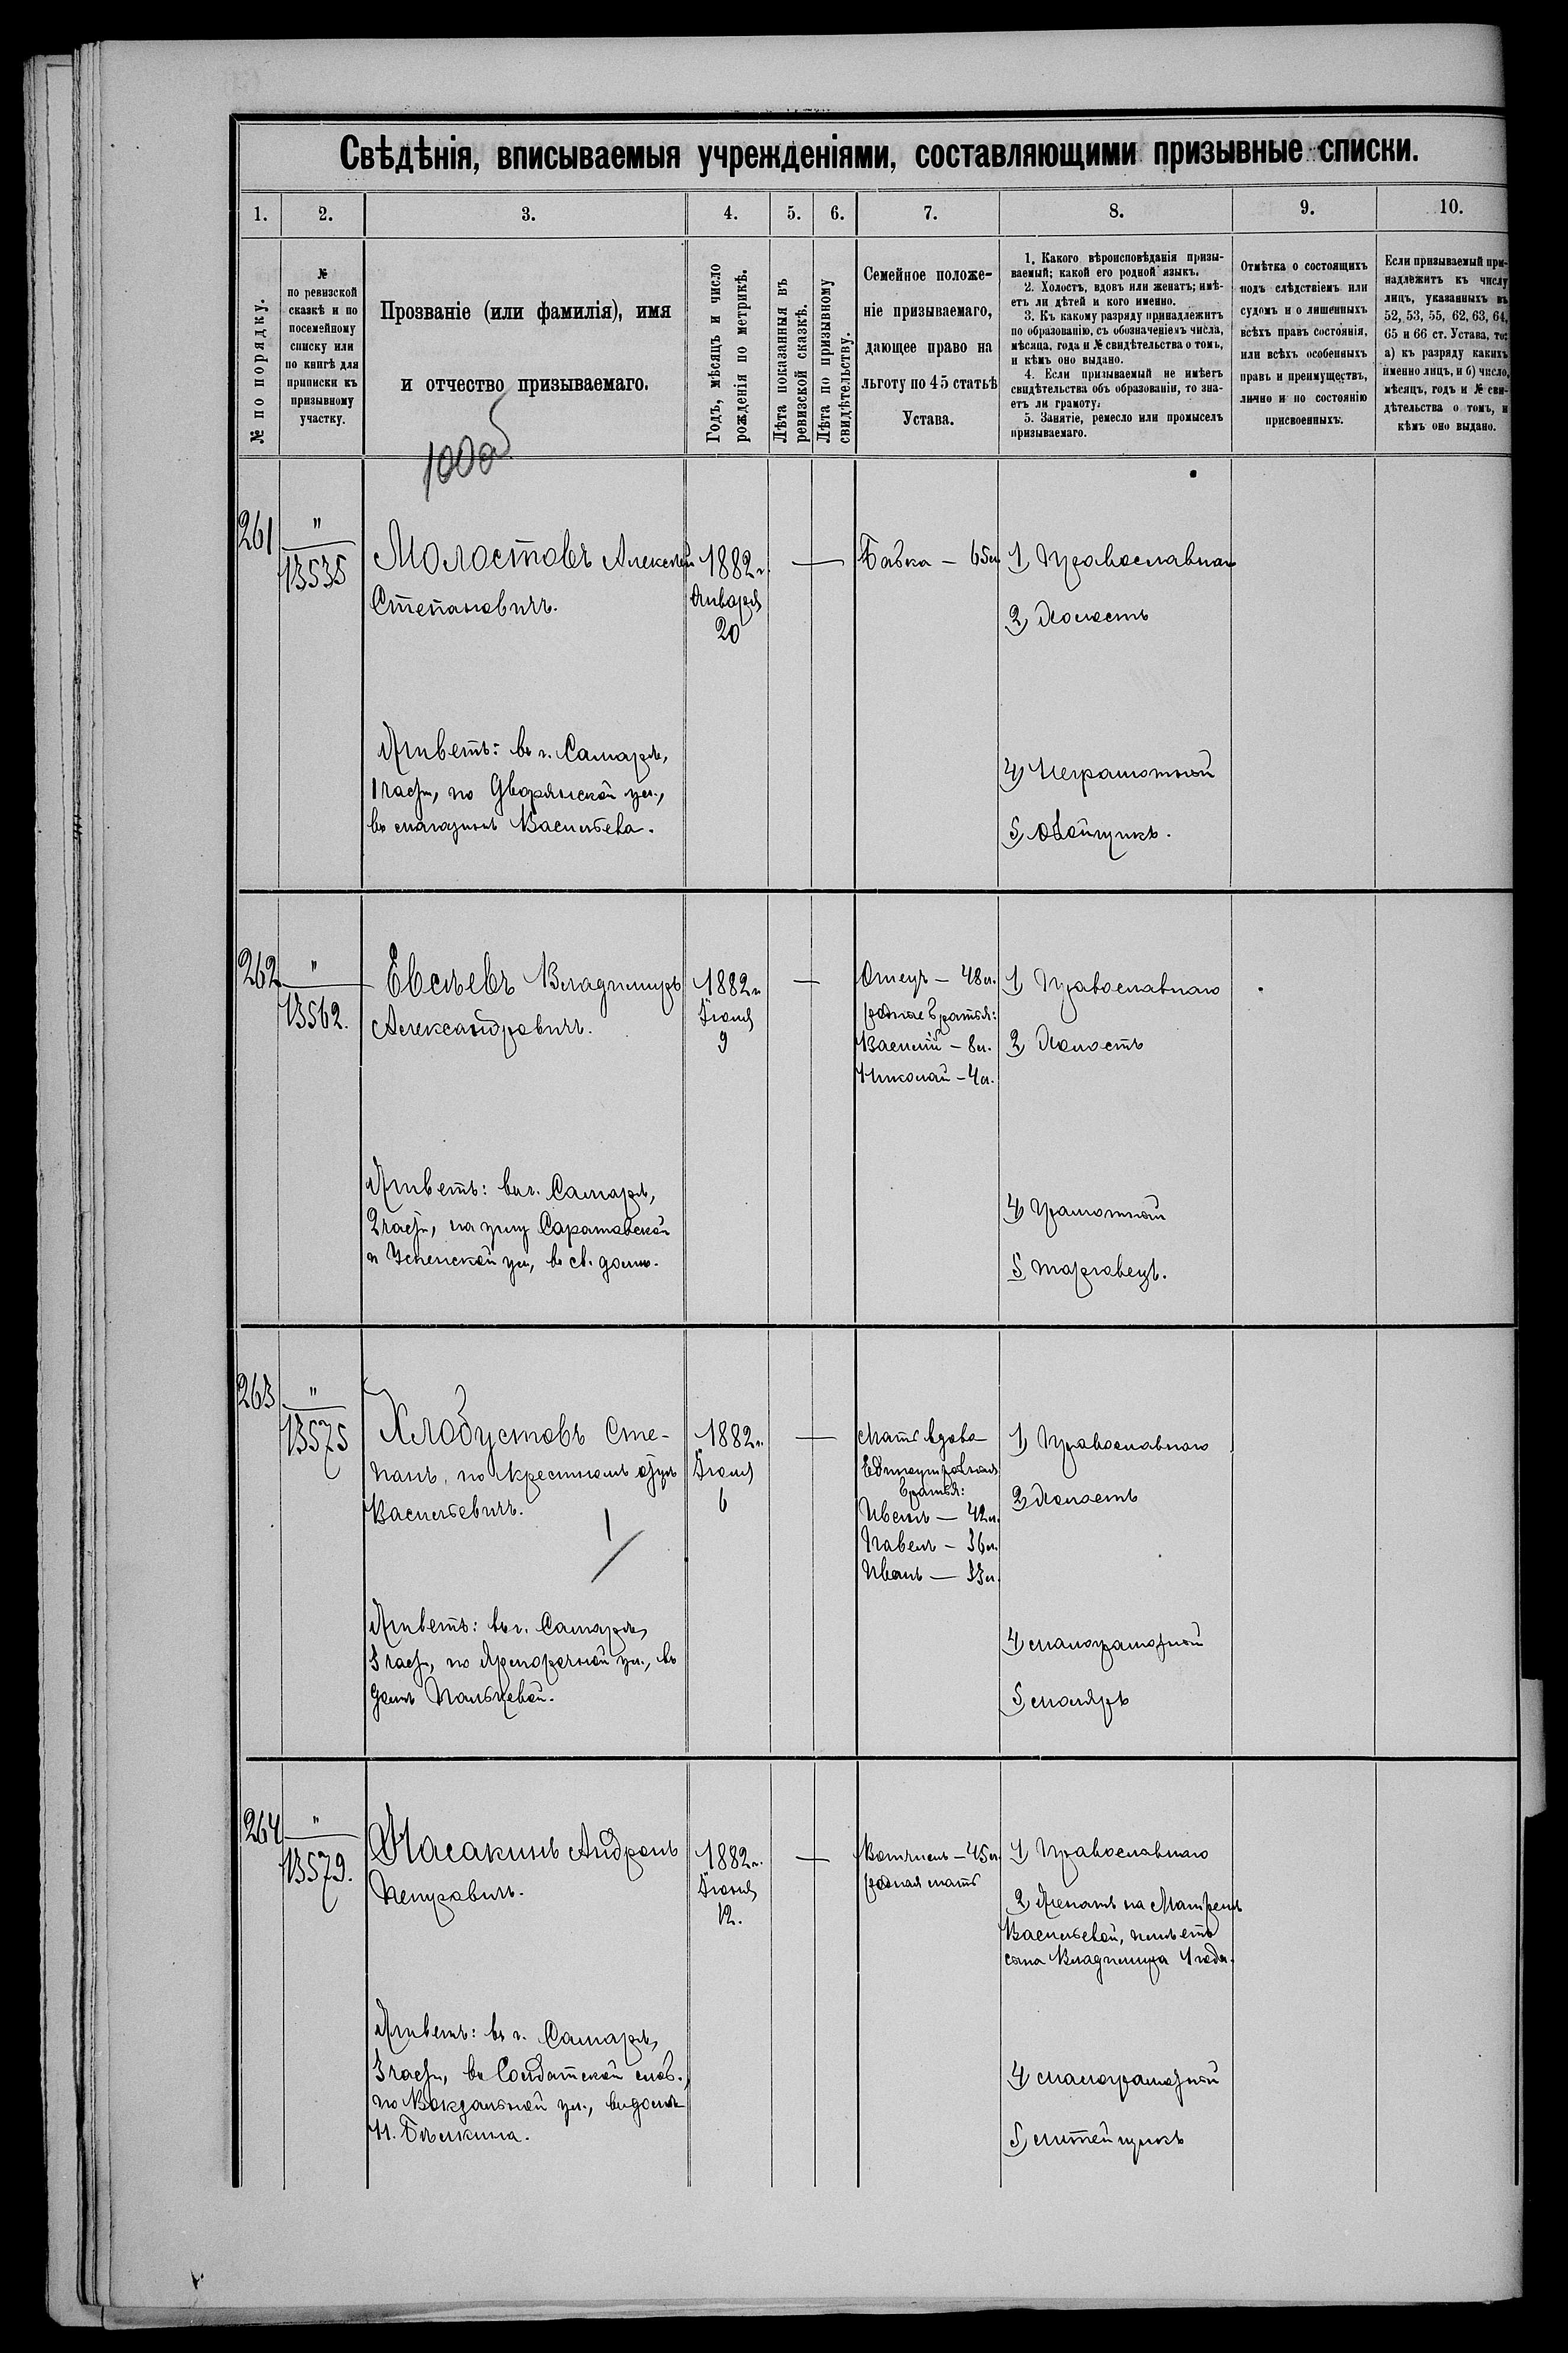 Свѣдѣнія, вписываемыя учрежденіями, составляющими призывные списки.
1. 2. 3. 4. 5. 6. 7. 8. 9. 10.
№ по порядку.
№
по ревизской
сказкѣ и по
посемейному
списку или
по книгѣ для
приписки къ
призывному
участку.
Прозваніе (или фамилія), имя
и отчество призываемаго.
Годъ, мѣсяцъ и число
рожденія по метрикѣ.
Лѣта показанныя въ
ревизской сказкѣ.
Лѣта по призывному
свидѣтельству.
Семейное положе-
ніе призываемаго,
дающее право на
льготу по 45 статьѣ
Устава.
1. Какого вѣроисповѣданія призы-
ваемый; какой его родной языкъ.
2. Холостъ, вдовъ или женатъ; имѣ-
етъ ли дѣтей и кого именно.
3. Къ какому разряду принадлежитъ
по образованію, съ обозначеніемъ числа,
мѣсяца, года и № свидѣтельства о томъ,
и кѣмъ оно выдано.
4. Если призываемый не имѣетъ
свидѣтельства объ образованіи, то зна-
етъ ли грамоту.
5. Занятіе, ремесло или промыселъ
призываемаго.
Отмѣтка о состоящихъ
подъ слѣдствіемъ или
судомъ и о лишенныхъ
всѣхъ правъ состоянія,
или всѣхъ особенныхъ
правъ и преимуществъ,
лично и по состоянію
присвоенныхъ.
Если призываемый при-
надлежитъ къ числу
лицъ, указанныхъ въ
52, 53, 55, 62, 63, 64,
65 и 66 ст. Устава, то:
а) къ разряду какихъ
именно лицъ, и б) число,
мѣсяцъ, годъ и № сви-
дѣтельства о томъ, и
кѣмъ оно выдано.
261
"
13535
Молостовъ Алексѣй
Степановичъ.
Живетъ: въ г. Самарѣ,
1 части, по Дворянской ул.,
въ магазинѣ Васильева.
1882 г.
Января
20
—
Бабка — 65 л.
1) Православнаго
2) Холостъ
4) Неграмотный
5) Обойщикъ.
262
"
13562.
Евсѣевъ Владимиръ
Александровичъ.
Живетъ: въ г. Самарѣ,
2 части, на углу Саратовской
и Успенской ул., въ св. домѣ.
1882 г.
Іюля
9
—
Отецъ — 48 л.
родные братья:
Василій — 8 л.
Николай — 4 л.
1) Православнаго
2) Холостъ
4) Грамотный
5) Торговецъ.
263
"
13575
Хлобустовъ Сте-
панъ, по крестномъ отцѣ
Васильевичъ.
Живетъ: въ г. Самарѣ,
3 части, по Ярмарочной ул., въ
домѣ Пальцевой.
1882 г.
Іюля
6
—
Мать вдова
Единоутробные
братья:
Павелъ — 36 л.
Иванъ — 33 л.
1) Православнаго
2) Холостъ
4) малограмотный
5) столяръ
264
"
13579.
Насакинъ Андронъ
Петровичъ.
Живетъ: въ г. Самарѣ,
3 части, въ Солдатской слоб.,
по Вокзальной ул., въ домѣ
Н. Бѣлкина.
1882 г.
12.
—
Вотчимъ — 45 л.
родная мать
1) Православнаго
2) Женатъ на Матренѣ
Васильевой, имѣетъ
сына Владимира 1 года.
4) малограмотный
5) литейщикъ